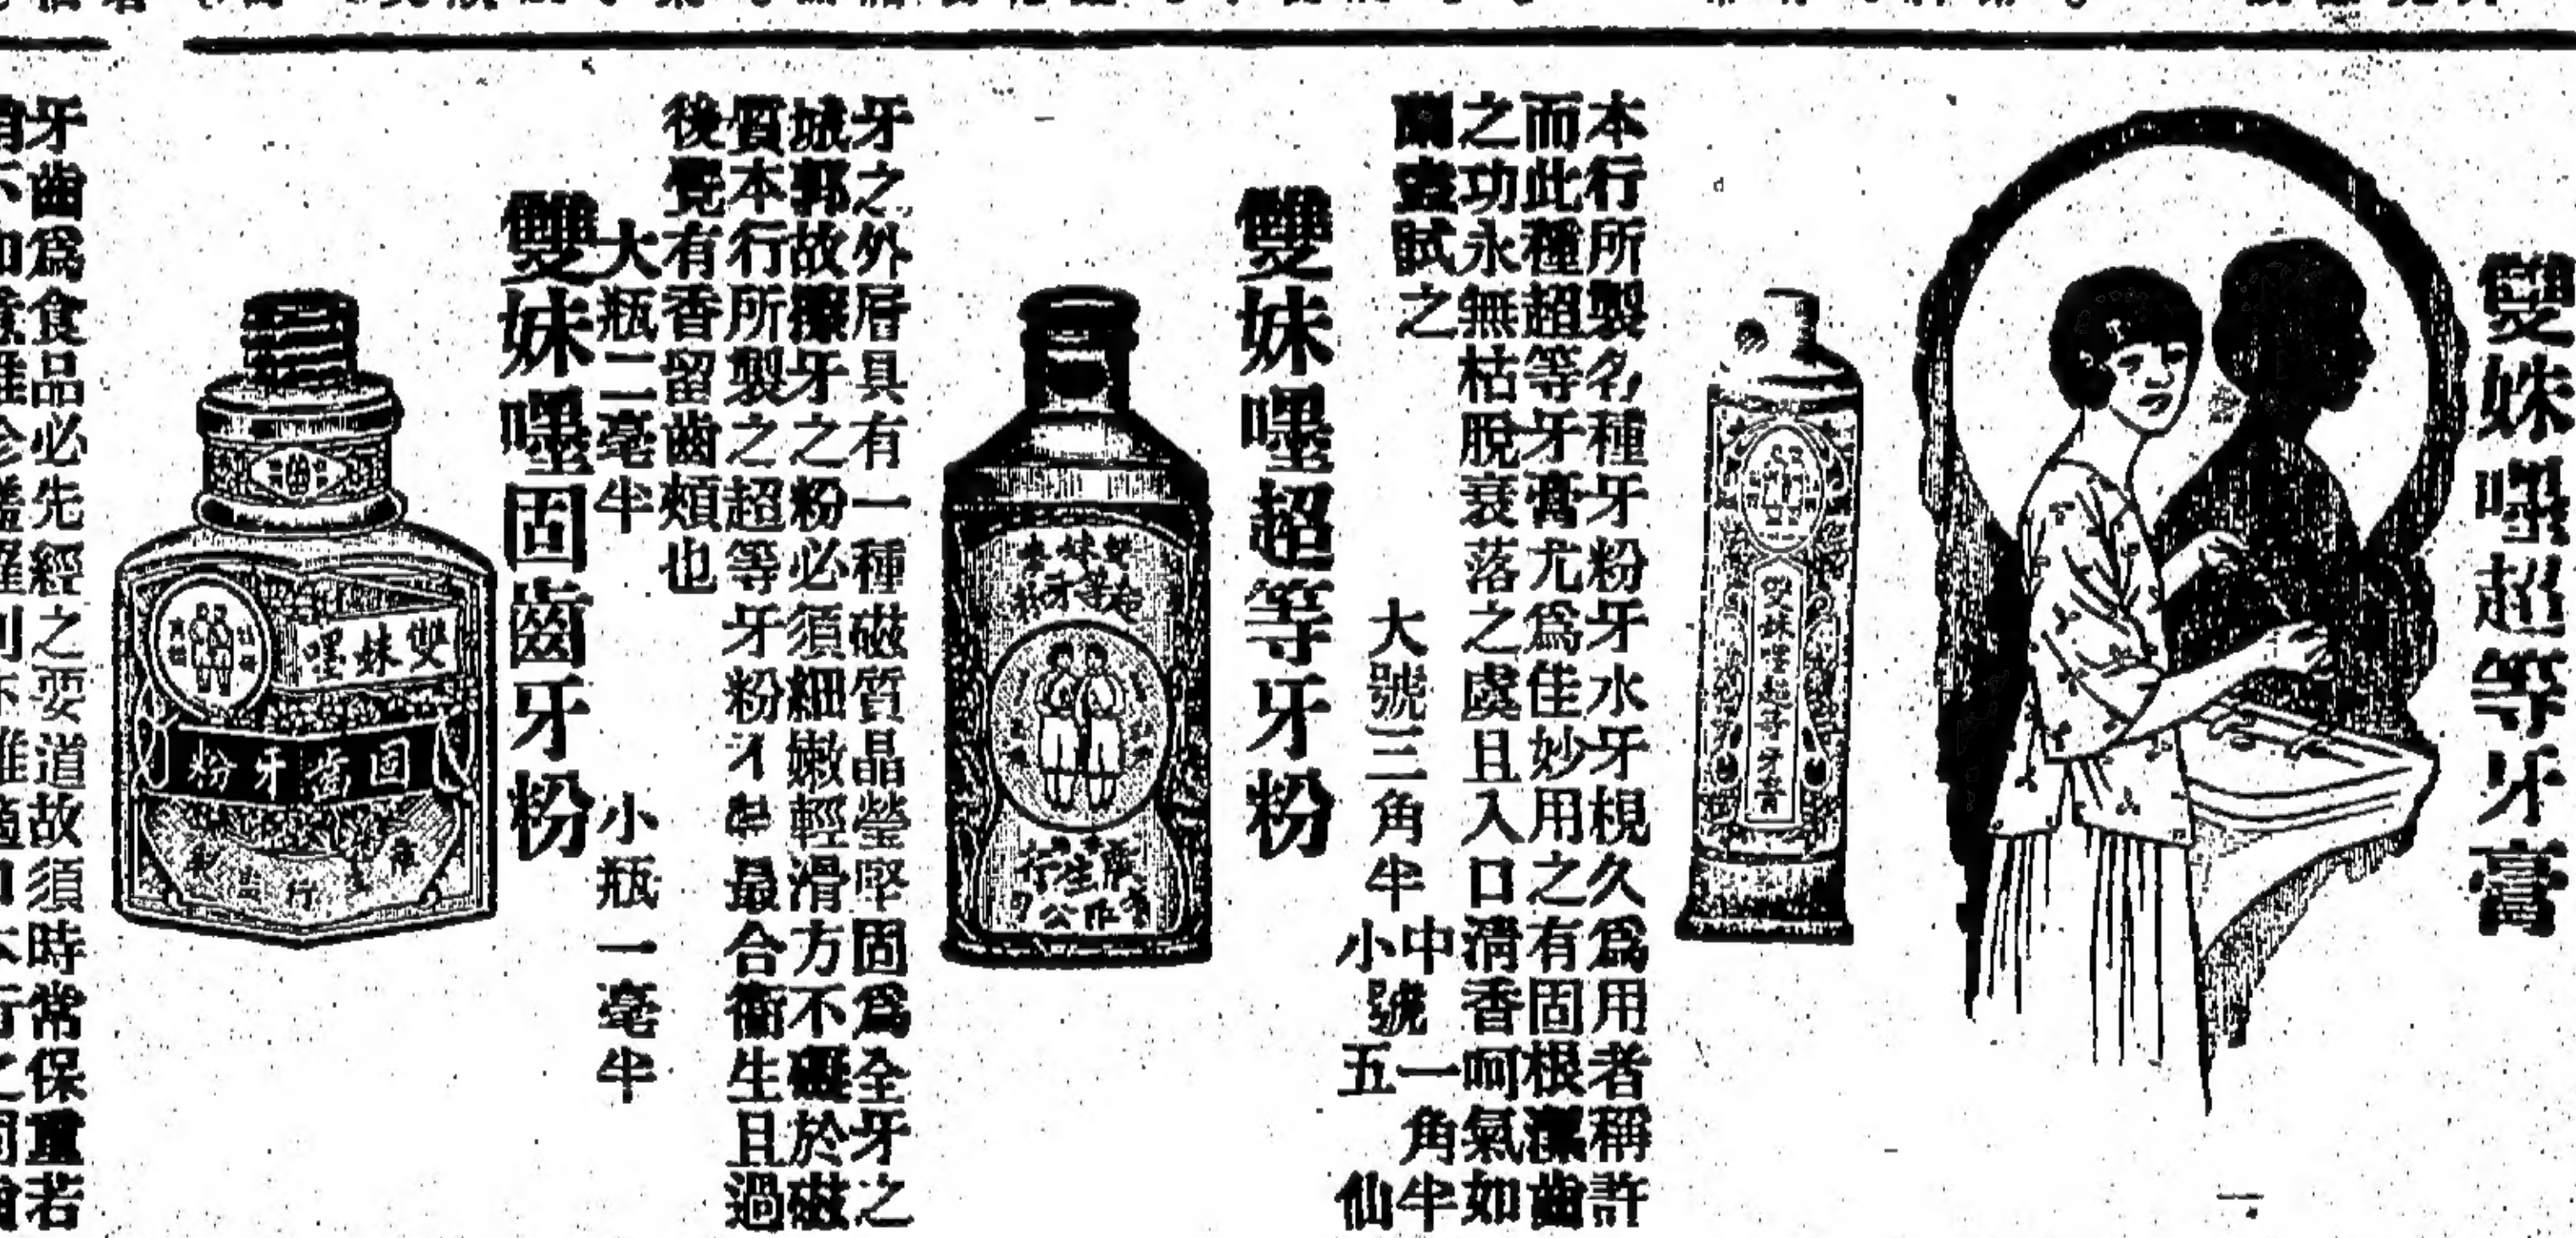 雙妹嚜超等牙膏
雙妹嚜超等牙膏
本行所製各種牙粉牙水牙梘久爲用者稱許
而此種超等牙膏尤爲佳妙用之有固根潔齒
之功永無枯脫衰落之虞且入口清香呵氣如
蘭盍試之
大號三角半
中號一角半
小號五仙
雙妹嚜超等牙粉
雙妹嚜
超等牙粉
廣生行
公司
牙之外層具有一種磁質晶瑩堅固爲全牙之
城郭故擦牙之粉必須細嫩輕滑方不礙於磁
質本行所製之超等牙粉最合衞生且過
後覺有香留齒頰也
大瓶二毫半
小瓶一毫半
雙妹嚜固齒牙粉
雙妹嚜
固齒牙粉
行
牙齒爲食品必先經之要道故須時常保重若